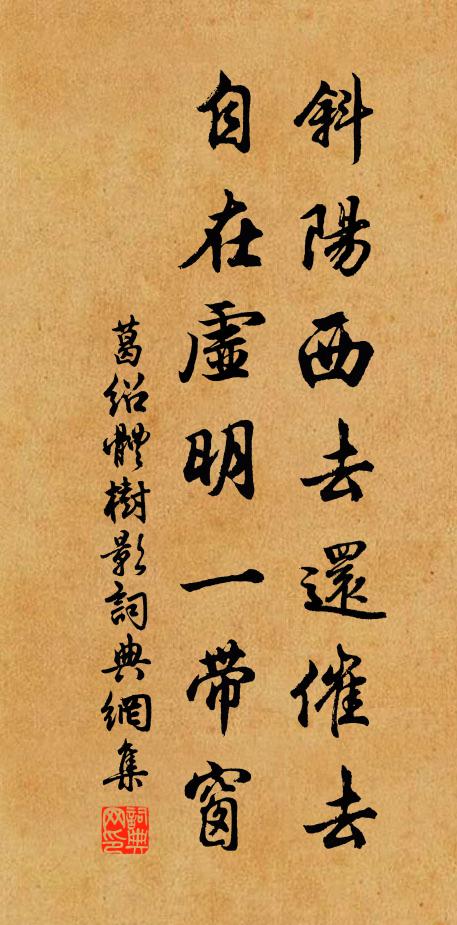 斜陽西去還催去
自在虛明一帶窗
葛紹體樹影詞典網集
詞典網印